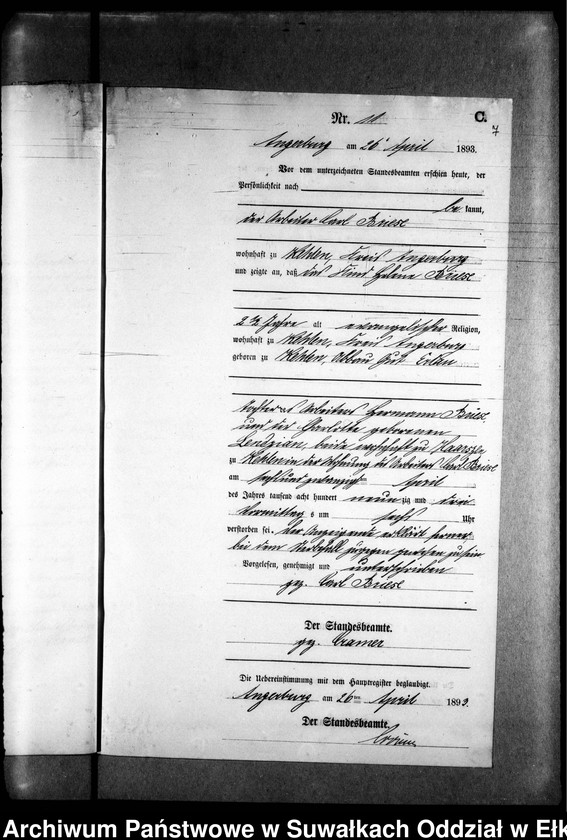 Nr. 11 C.
7
Angerburg am 26 April 1893.
Vor dem unterzeichneten Standesbeamten erschien heute, der
Persönlichkeit nach
be kannt,
der Arbeiter Carl Briese
wohnhaft zu Kehlen, Kreis Angerburg
und zeigte an, daß das Kind Helene Briese
2 ½ Jahre alt evangelischer Religion,
wohnhaft zu Kehlen, Kreis Angerburg
geboren zu Kehlen, Abbau Gut
Tochter des Arbeiters Hermann Briese
und der Charlotte geborenen
Lendzian, beide wohnhaft zu
zu Kehlen in der Wohnung des Arbeiters Carl Briese
am sechsundzwanzigsten April
des Jahres tausend acht hundert neun zig und drei
Vormittag s um sechs Uhr
verstorben sei. Der Anzeigende erklärt ferner
bei dem Sterbefall zugegen gewesen zu sein
Vorgelesen, genehmigt und unterschrieben
gez. Carl Briese
Der Standesbeamte.
gez. Cramer
Die Uebereinstimmung mit dem Hauptregister beglaubigt.
Angerburg am 26ten April 1893.
Der Standesbeamte.
Archiwum Państwowe w Suwałkach Oddział w Ełk